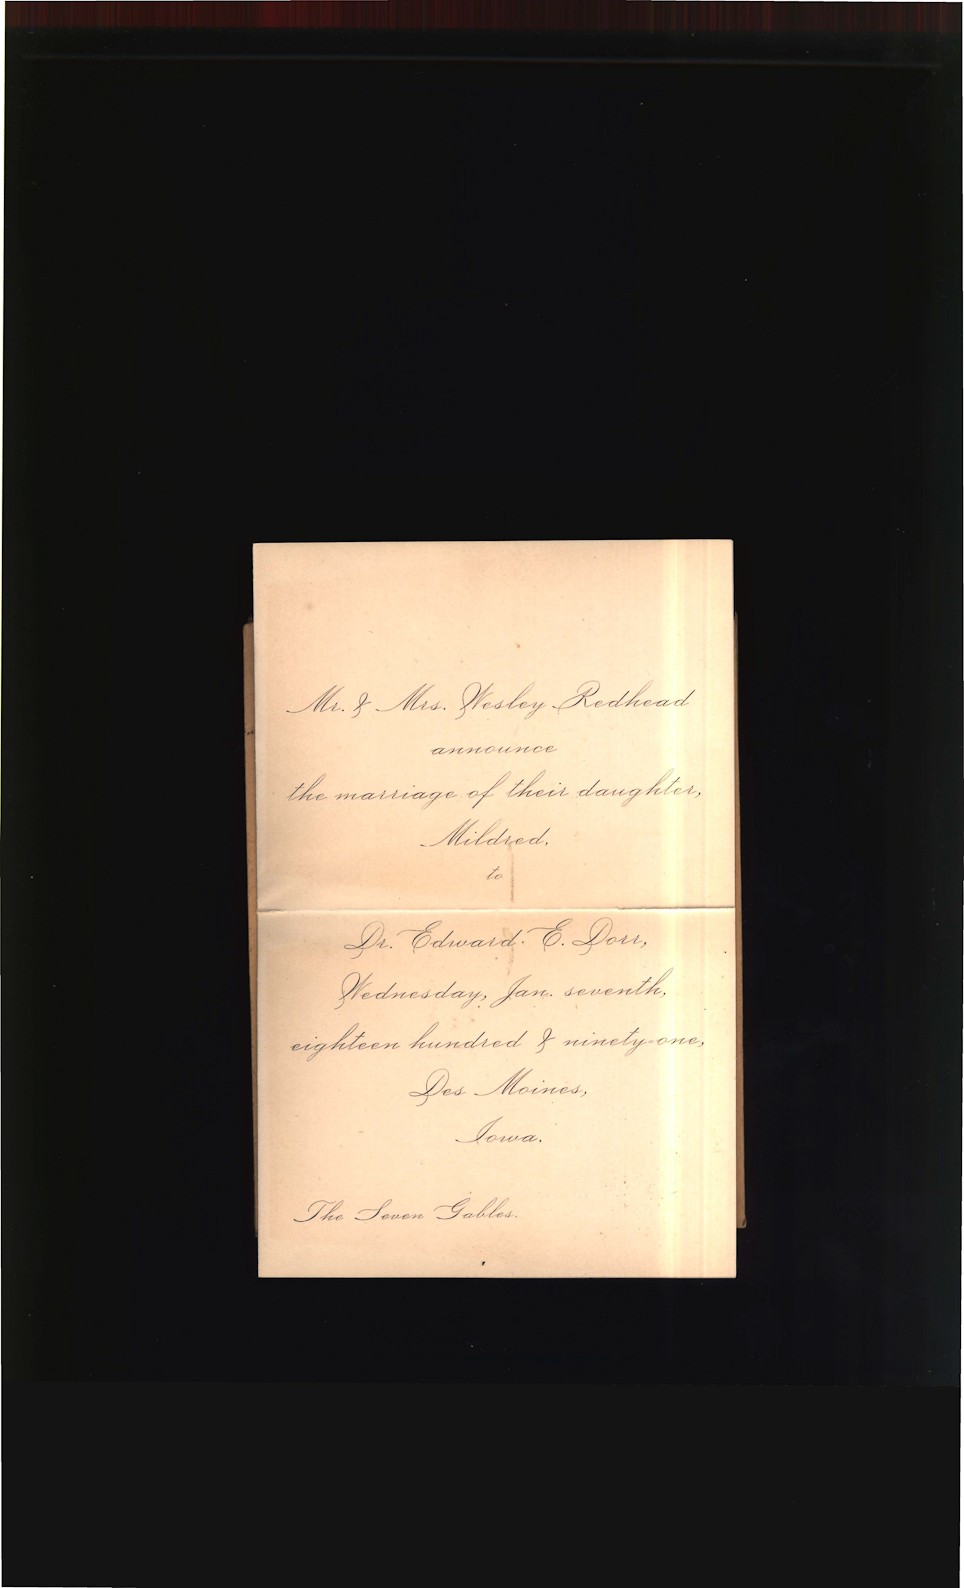 Mr. & Mrs. Wesley Redhead
announce
the marriage of their daughter,
Mildred,
to
Dr. Edward E. Dorr,
Wednesday, Jan. seventh,
eighteen hundred & ninety-one,
Des Moines,
Iowa.
The Seven Gables.